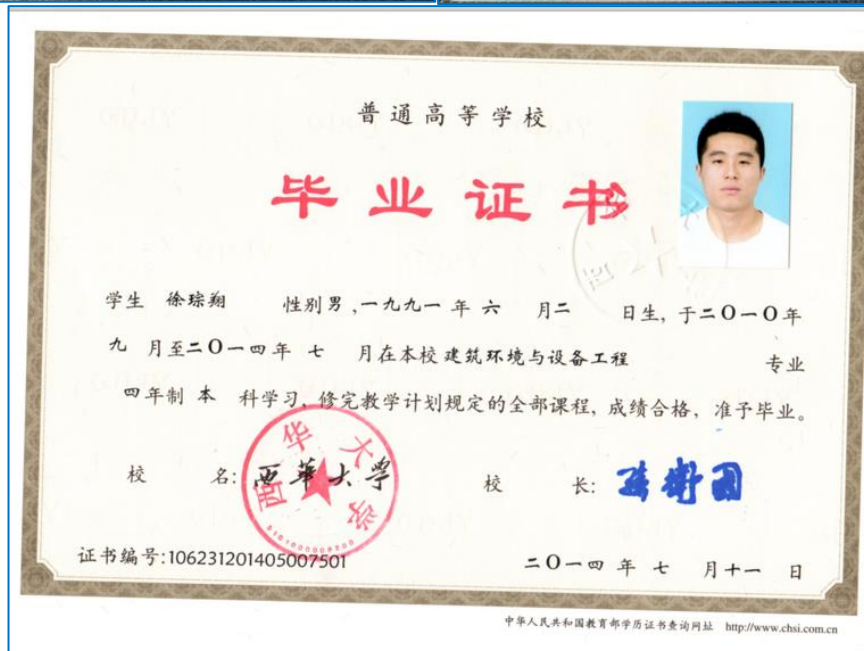 普通高等学校
毕业证书
学生 徐琮翔 性别 男 , 一九九一 年 六 月 二 日生, 于二〇一〇年
九 月至二〇一四年 七 月在本校 建筑环境与设备工程 专业
四年制 本 科学习, 修完教学计划规定的全部课程, 成绩合格, 准予毕业。
校 名: 西華大學
校 长: 孙卫国
西华大学
证书编号:106231201405007501
二〇一四 年 七 月十一 日
中华人民共和国教育部学历证书查询网址 http://www.chsi.com.cn